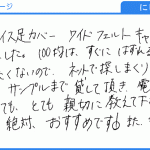 ージ
に
イス足カバー ワイドフェルト キャ
した。100均は、すぐに はずれる
くないので、ネットで探しまくり
サンプルまで貸して頂き、電
ても、とても 親切に 教えて下さ
絶対、おすすめです また、